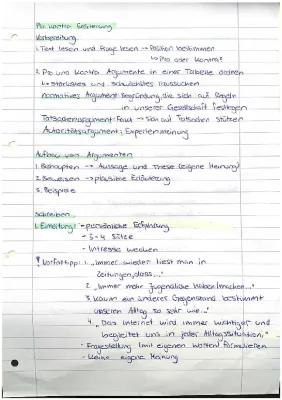 Pro Kontra Erörterung
Vorbereitung
1. Text lesen und Frage lesen → Position bestimmen
↳ Pro oder Kontra?
2. Pro und Kontra Argumente in einer Tabelle ordnen
↳ stärkstes und schwächstes raussuchen
normatives Argument: Begründung, die sich auf Regeln
in unserer Gesellschaft festlegen
Tatsachenargument: Fakt → sich auf Tatsachen stützen
Autoritätsargument: Expertenmeinung
Aufbau von Argumenten
1. Behaupten → Aussage und These (eigene Meinung)
2. Beweisen → plausible Erläuterung
3. Beispiele
Schreiben
1. Einleitung: - persönliche Erfahrung
- 3-4 Sätze
- Interesse wecken
! Vorfalltipp: 1. „Immer wieder liest man in
Zeitungen, dass..."
2. „Immer mehr Jugendliche haben/machen..."
3. Kaum ein anderer Gegenstand bestimmt
unseren Alltag so sehr wie..."
4. „Das Internet wird immer wichtiger und
begleitet uns in jeder Alltagssituation,"
- Fragestellung (mit eigenen Worten) formulieren
- Keine eigene Meinung